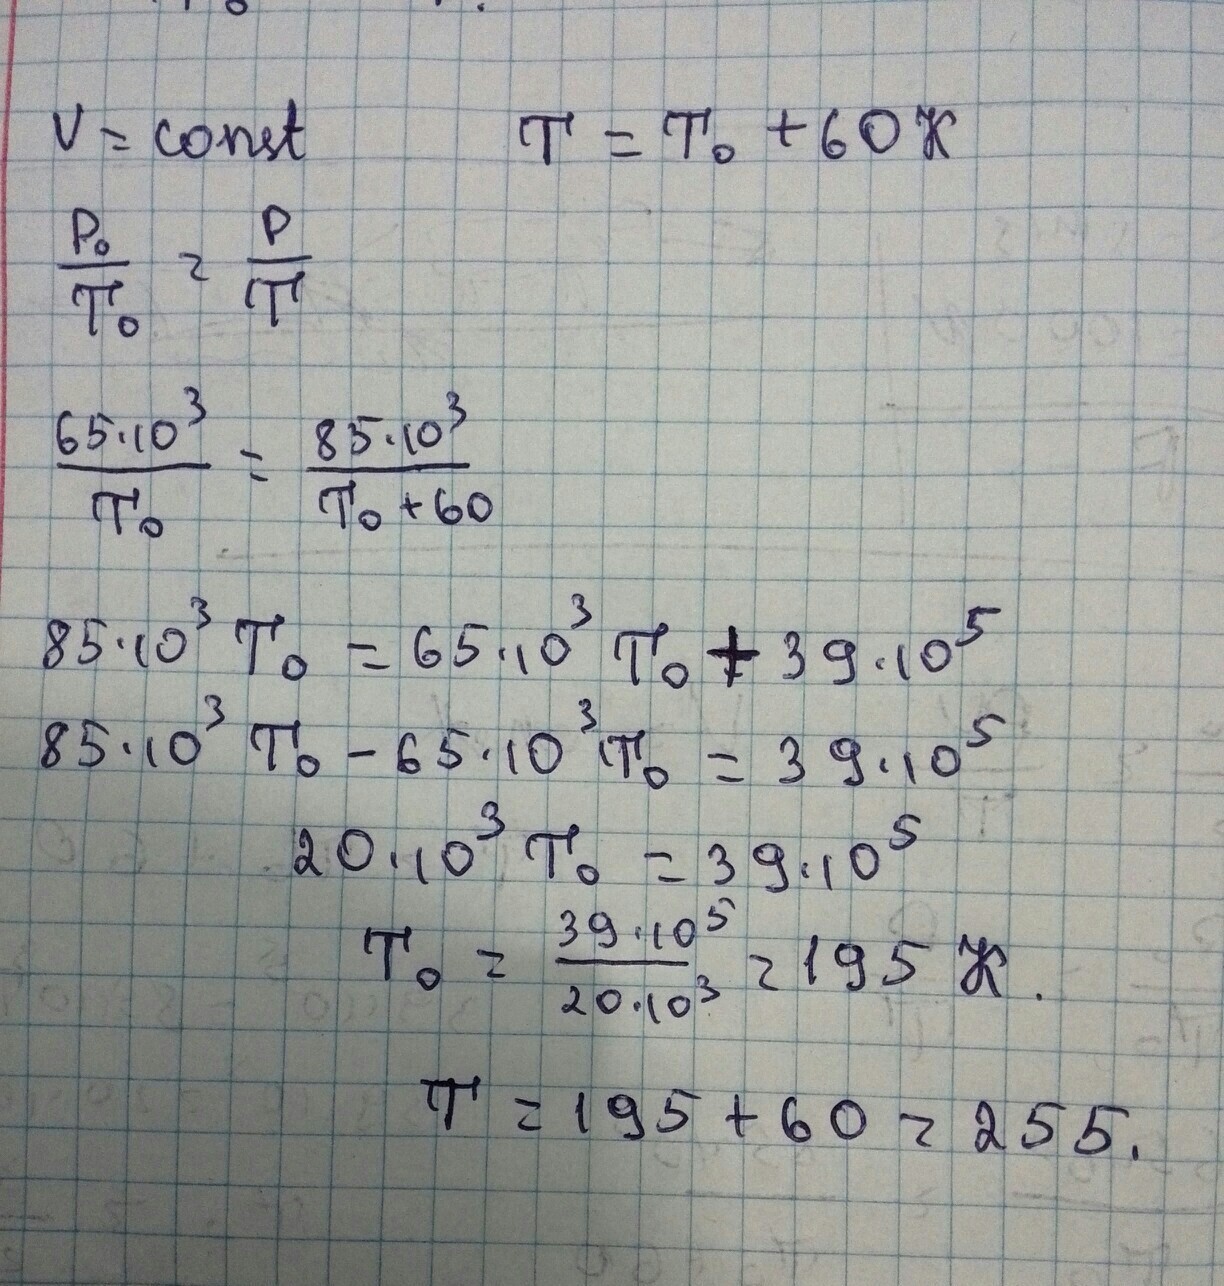 V = const T = T₀ + 60 K
P₀/T₀ = P/T
65·10³/T₀ = 85·10³/(T₀ + 60)
85·10³ T₀ = 65·10³ T₀ + 39·10⁵
85·10³ T₀ - 65·10³ T₀ = 39·10⁵
20·10³ T₀ = 39·10⁵
T₀ = 39·10⁵/20·10³ = 195 K.
T = 195 + 60 = 255.